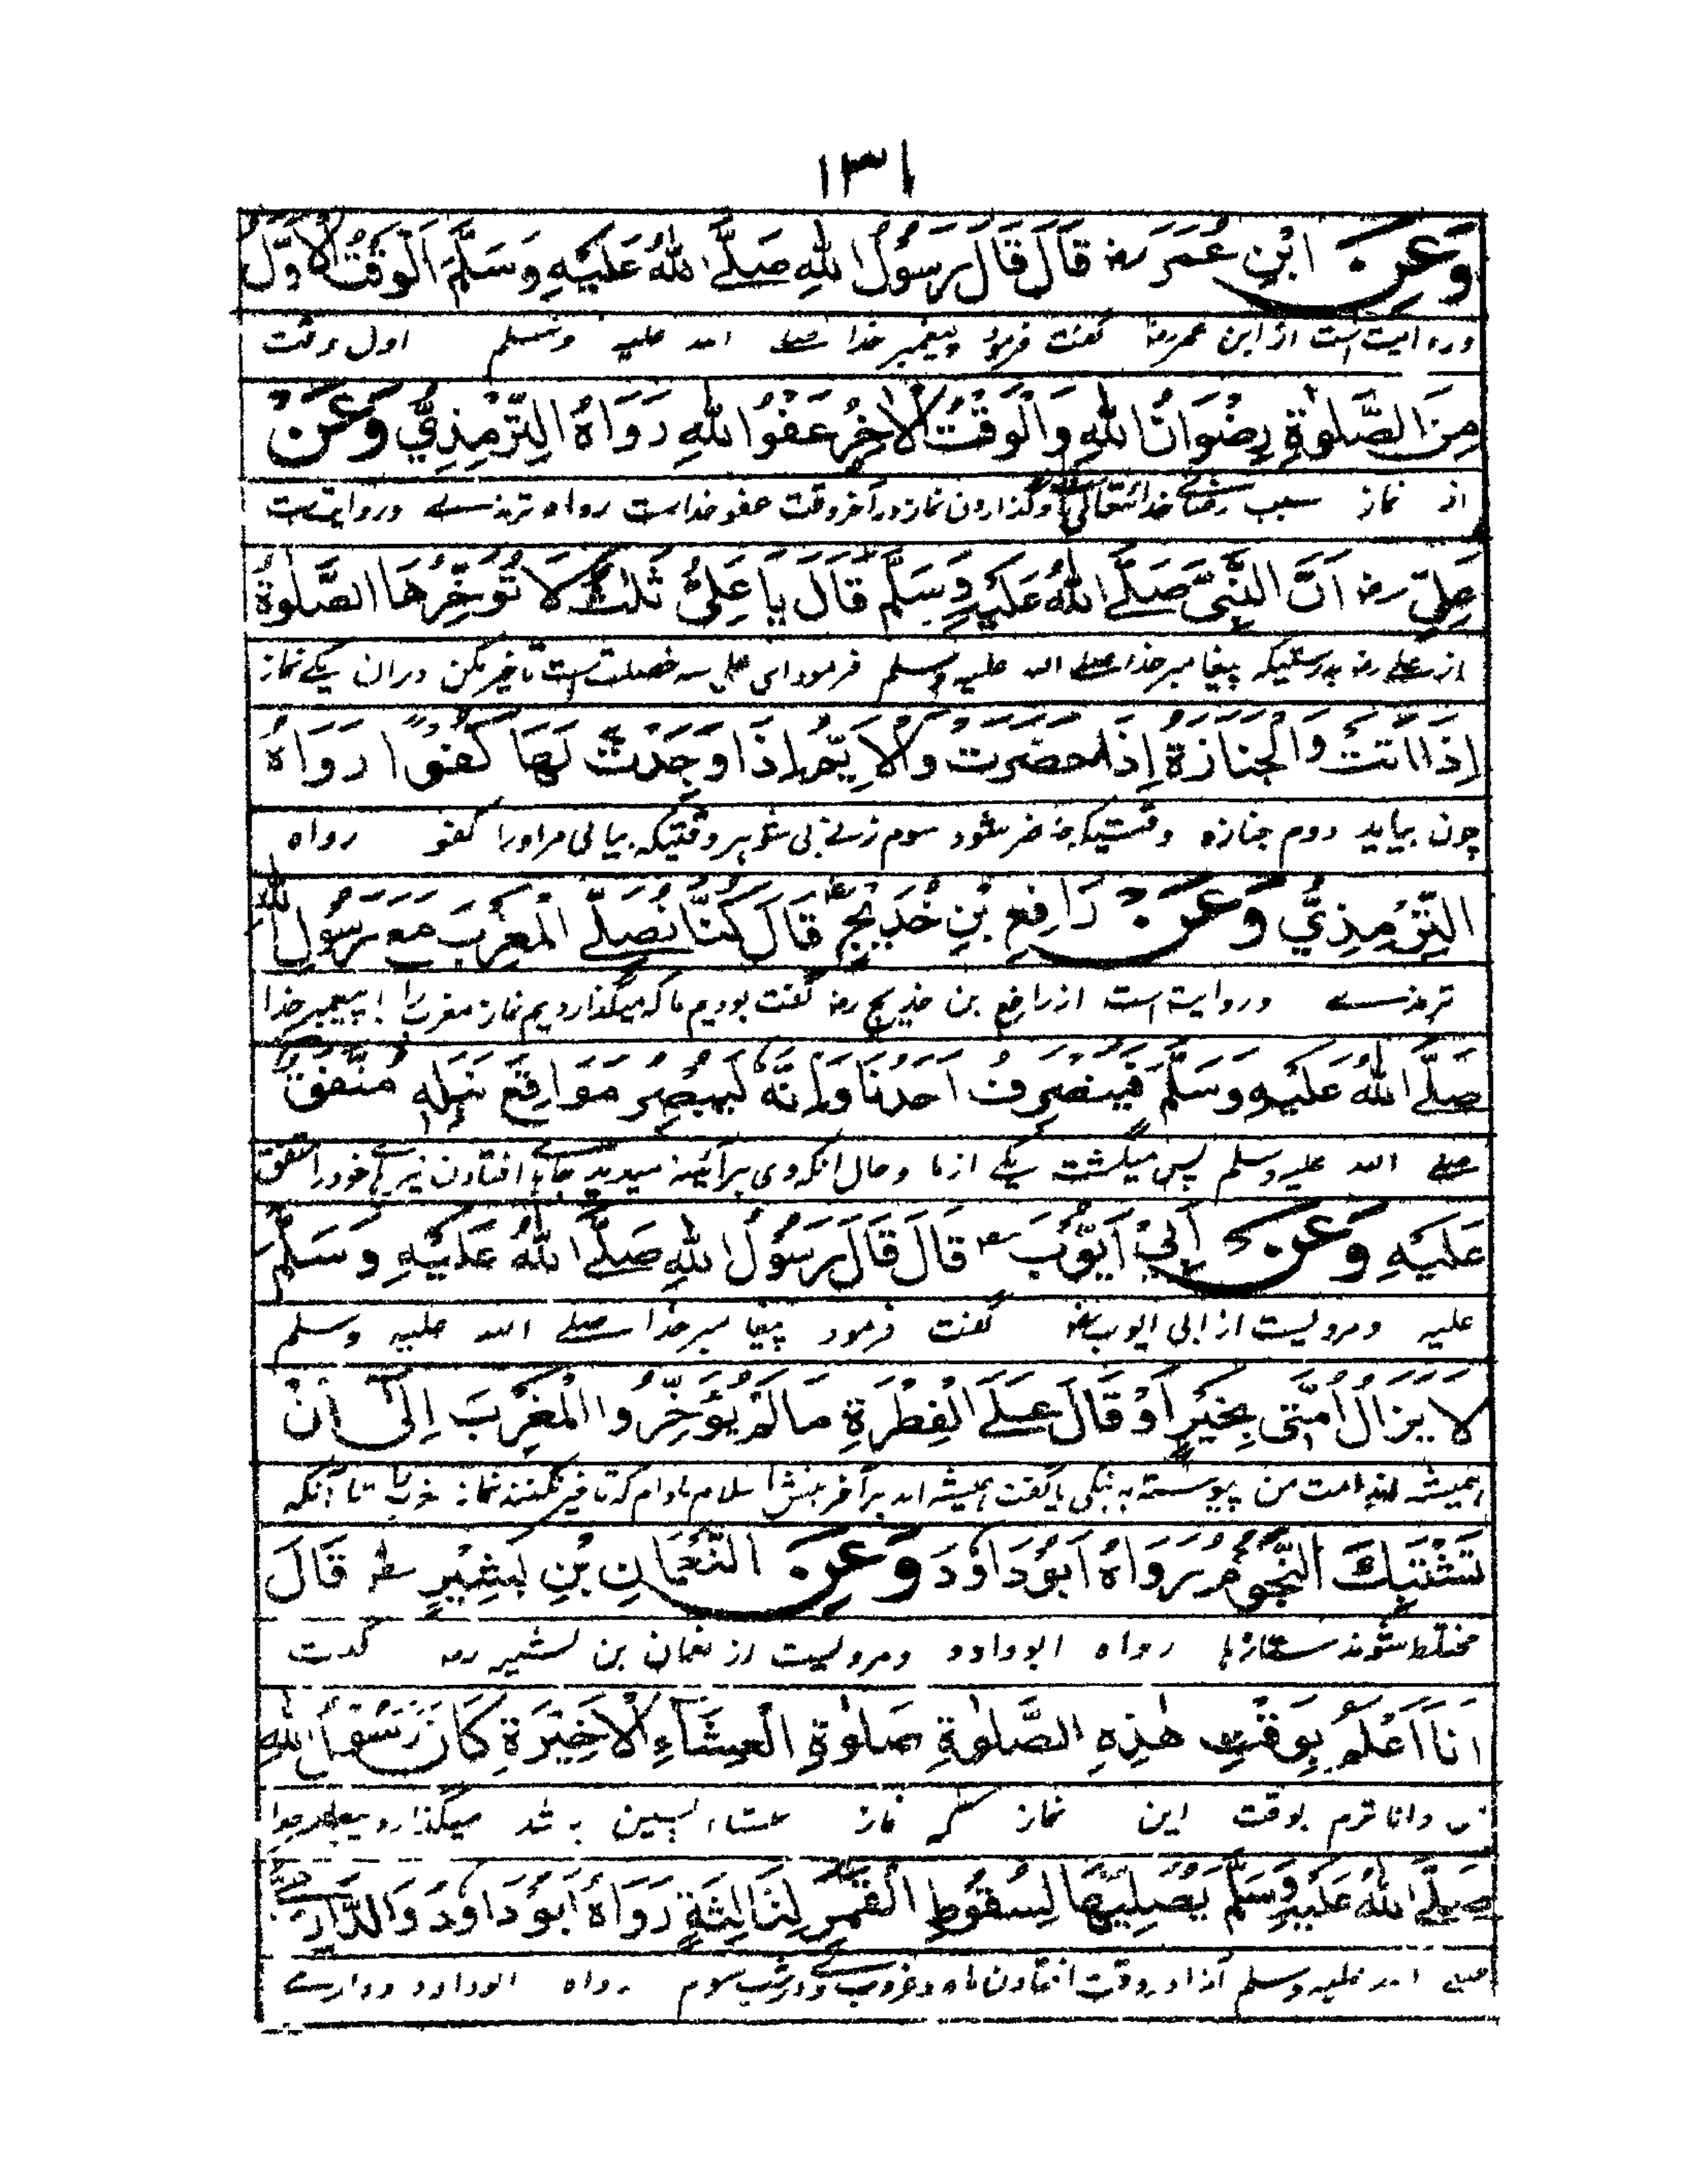 ١٣١
وَعَنِ ابْنِ عُمَرَ رضـ قَالَ قَالَ رَسُوْلُ اللهِ صَلَّے اللهُ عَلَيْهِ وَسَلَّمَ اَلْوَقْتُ الْاَوَّلُ
وروایت است از ابن عمر رضـ گفت فرمود پیغمبر خدا صلے الله علیه وسلم اول وقت
مِنَ الصَّلٰوةِ رِضْوَانُ اللهِ وَالْوَقْتُ الْاٰخِرُ عَفْوُ اللهِ رَوَاهُ التِّرْمِذِيُّ وَعَنْ
از نماز سبب خدا تعالی وگذاردن نماز در آخر وقت عفو خداست رواه ترمذے وروایت است
عَلِيٍّ رضـ اَنَّ النَّبِيَّ صَلَّے اللهُ عَلَيْهِ وَسَلَّمَ قَالَ يَا عَلِيُّ ثَلٰثٌ لَا تُؤَخِّرْهَا الصَّلٰوةُ
از علے رضـ بدرستیکه پیغامبر خدا صلے الله علیه وسلم فرمود ای علی سه خصلت است تاخیر مکن دران یکے نماز
اِذَا اَتَتْ وَالْجَنَازَةُ اِذَا حَضَرَتْ وَالْاَيِّمُ اِذَا وَجَدْتَّ لَهَا كُفُوًا رَوَاهُ
چون بیاید دوم جنازه وقتیکه حاضر شود سوم زنے بی شوهر وقتیکه بیابی مر اورا کفو رواه
التِّرْمِذِيُّ وَعَنْ رَافِعِ بْنِ خَدِيْجٍ قَالَ كُنَّا نُصَلِّے الْمَغْرِبَ مَعَ رَسُوْلِ اللهِ
ترمذے وروایت است از رافع بن خدیج رضـ گفت بودیم ما که میگذاردیم نماز مغرب را با پیغمبر خدا
صَلَّے اللهُ عَلَيْهِ وَسَلَّمَ فَيَنْصَرِفُ اَحَدُنَا وَاِنَّهٗ لَيُبْصِرُ مَوَاقِعَ نَبْلِهٖ مُتَّفَقٌ
صلے الله علیه وسلم پس میگشت یکے از ما وحال انکه وی هر آئینه میدید جاہاے افتادن تیرہاے خود را متفق
عَلَيْهِ وَعَنْ اَبِيْ اَيُّوْبَ قَالَ قَالَ رَسُوْلُ اللهِ صَلَّے اللهُ عَلَيْهِ وَسَلَّمَ
علیه ومرویست از ابی ایوب رضـ گفت فرمود پیغامبر خدا صلے الله علیه وسلم
لَا يَزَالُ اُمَّتِيْ بِخَيْرٍ اَوْ قَالَ عَلَے الْفِطْرَةِ مَا لَمْ يُؤَخِّرُوا الْمَغْرِبَ اِلٰى اَنْ
همیشه امت من پیوسته به نیکی یا گفت همیشه اند بر آفرینش اسلام مادام که تاخیر نکنند نماز مغرب را تا آنکه
تَشْتَبِكَ النُّجُوْمُ رَوَاهُ اَبُوْ دَاوٗدَ وَعَنِ النُّعْمَانِ بْنِ بَشِيْرٍ قَالَ
مختلط شوند ستارها رواه ابوداود ومرویست از نعمان بن بشیر رضـ گفت
اَنَا اَعْلَمُ بِوَقْتِ هٰذِهِ الصَّلٰوةِ صَلٰوةِ الْعِشَاءِ الْاٰخِيْرَةِ كَانَ رَسُوْلُ اللهِ
من دانا ترم بوقت این نماز که نماز عشاء پسین باشد میگذارد پیغامبر خدا
صَلَّے اللهُ عَلَيْهِ وَسَلَّمَ يُصَلِّيْهَا لِسُقُوْطِ الْقَمَرِ لِثَالِثَةٍ رَوَاهُ اَبُوْ دَاوٗدَ وَالدَّارِمِيُّ
صلے الله علیه وسلم آنرا در وقت افتادن ماه وغروب وے در شب سوم رواه ابوداود ودارمے